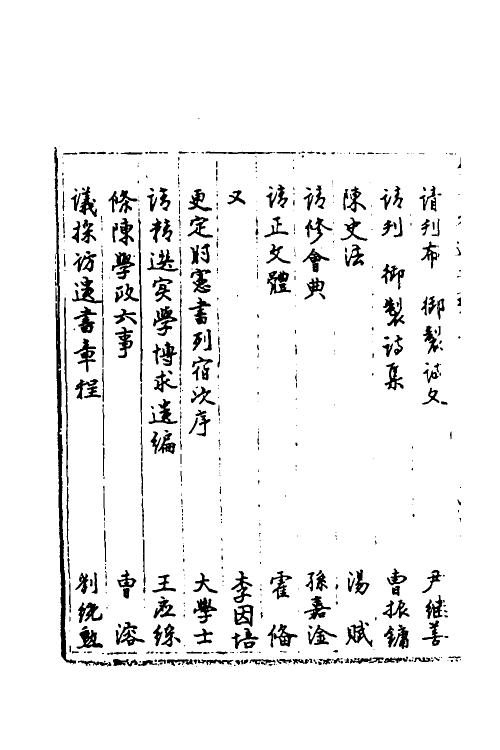 請刊布　御製詩文　尹繼善
請刊　御製詩集　曹振鏞
陳史法　湯斌
請修會典　孫嘉淦
請正文體　霍備
又　李因培
更定時憲書列宿次序　大學士
請精選實學博求遺編　王應綵
條陳學政六事　曹溶
議採訪遺書章程　劉統勲